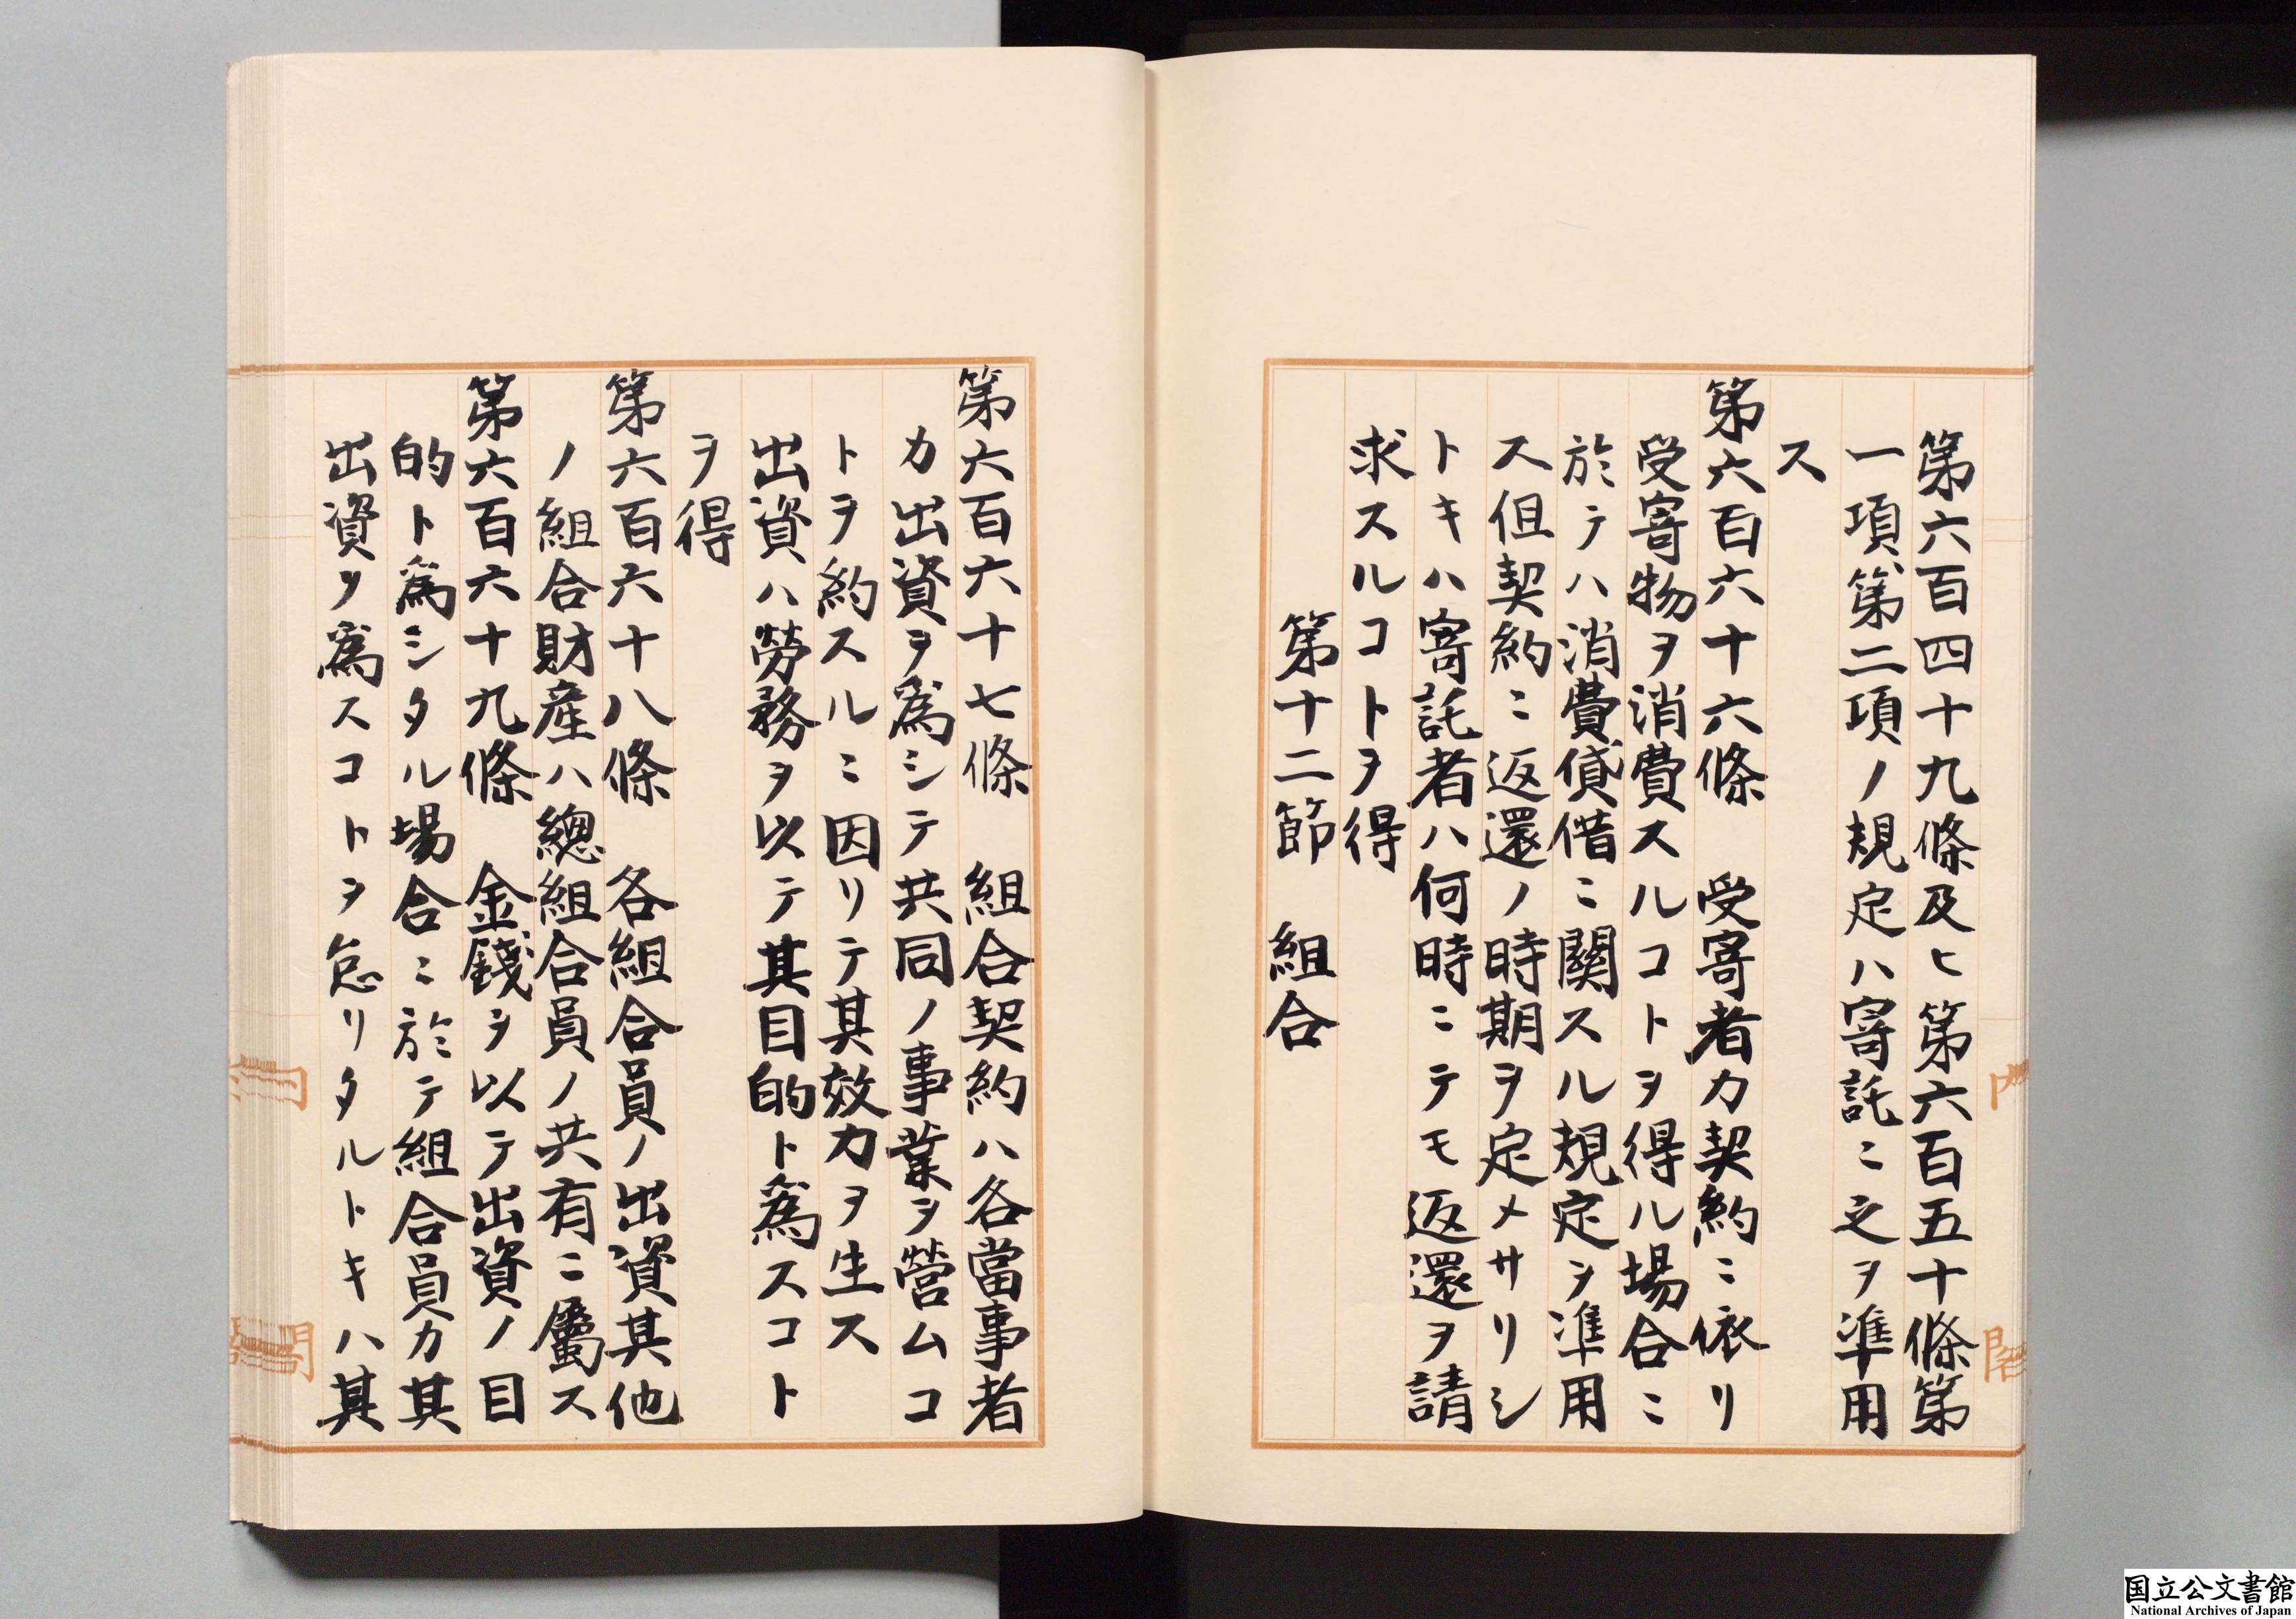 第六百四十九條及ヒ第六百五十條第
一項、第二項ノ規定ハ寄託ニ之ヲ準用
ス
第六百六十六條　受寄者カ契約ニ依リ
受寄物ヲ消費スルコトヲ得ル場合ニ
於テハ消費貸借ニ關スル規定ヲ準用
ス但契約ニ返還ノ時期ヲ定メサリシ
トキハ寄託者ハ何時ニテモ返還ヲ請
求スルコトヲ得
第十二節　組合
第六百六十七條　組合契約ハ各當事者
カ出資ヲ爲シテ共同ノ事業ヲ營ムコ
トヲ約スルニ因リテ其效力ヲ生ス
出資ハ勞務ヲ以テ其目的ト爲スコト
ヲ得
第六百六十八條　各組合員ノ出資其他
ノ組合財產ハ總組合員ノ共有ニ屬ス
第六百六十九條　金錢ヲ以テ出資ノ目
的ト爲シタル場合ニ於テ組合員カ其
出資ヲ爲スコトヲ怠リタルトキハ其
内閣
国立公文書館
National Archives of Japan